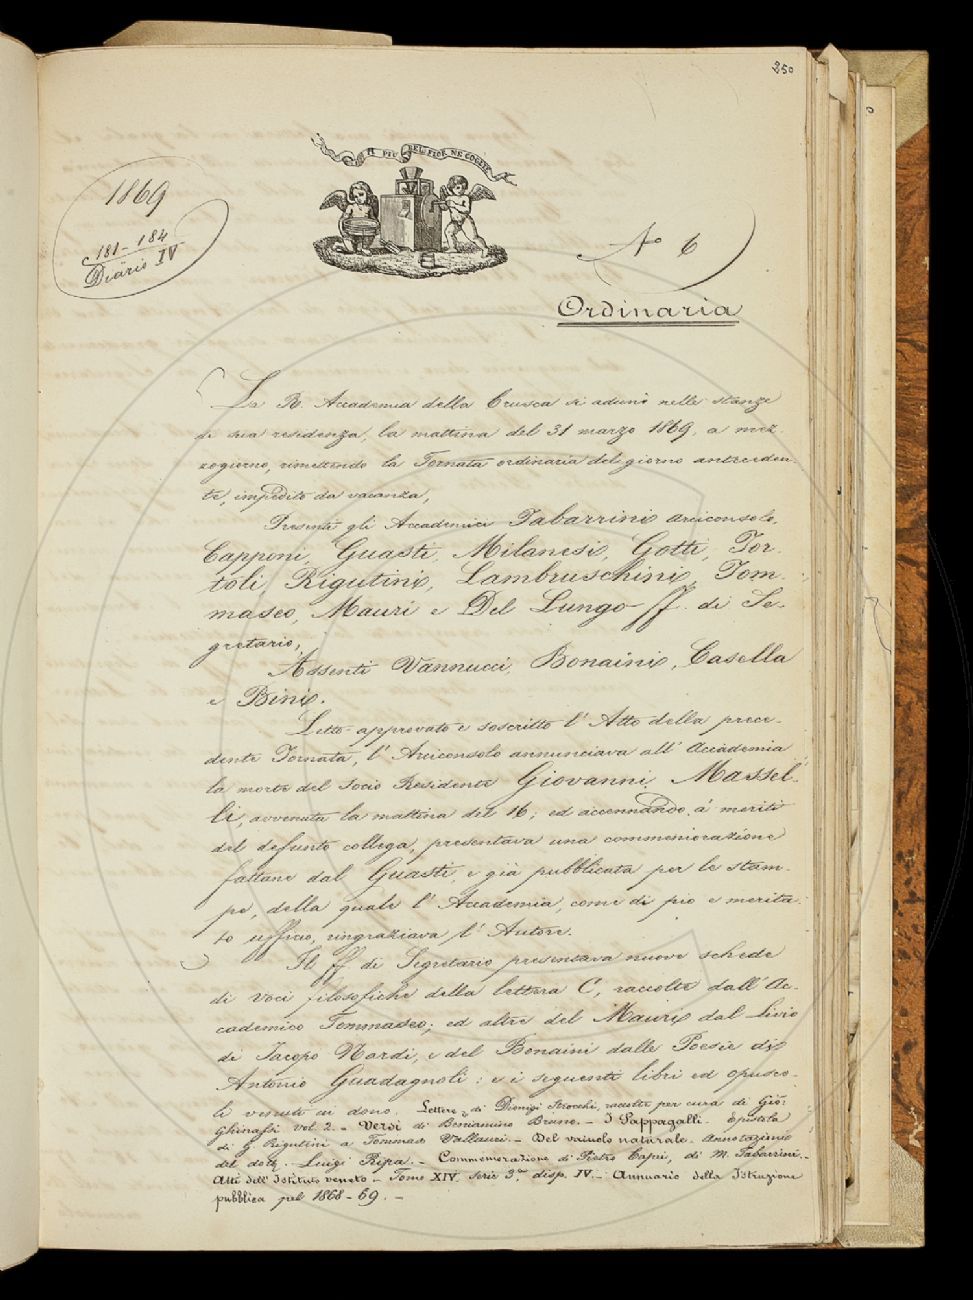 250
IL PIÙ BEL FIOR NE COGLIE
1869
181 - 184
Diario IV
N° 6
Ordinaria
La R. Accademia della Crusca si adunò nelle stanze
di sua residenza, la mattina del 31 marzo 1869, a mez-
zogiorno, rimettendo la Tornata ordinaria del giorno anteceden-
te, impedito da vacanza,
Presenti gli Accademici Tabarrini Arciconsolo,
Capponi, Guasti, Milanesi, Gotti, Tor-
toli, Rigutini, Lambruschini, Tom-
maseo, Mauri e Del Lungo ff. di Se-
gretario,
Assenti Vannucci, Bonaini, Casella
e Bini.
Letto approvato e soscritto l'Atto della prece-
dente Tornata, l'Arciconsolo annunciava all'Accademia
la morte del Socio Residente Giovanni Massel-
li, avvenuta la mattina del 16; ed accennando a' meriti
del defunto collega, presentava una commemorazione
fattane dal Guasti, e già pubblicata per le stam-
pe, della quale l'Accademia, come di pio e merita-
to ufficio, ringraziava l'Autore.
Il ff. di Segretario presentava nuove schede
di voci filosofiche della lettera C, raccolte dall'Ac-
cademico Tommaseo; ed altre del Mauri dal Livio
di Jacopo Nardi, e del Bonaini dalle Poesie di
Antonio Guadagnoli: e i seguenti libri ed opusco-
li venuti in dono. Lettere di Dionigi Strocchi, raccolte per cura di Gio:
Ghinassi vol. 2. - Versi di Beniamino Bruno. - I Pappagalli. Epistola
di G. Rigutini a Tommaso Vallauri. - Del vaiuolo naturale. Annotazioni
del dott. Luigi Ripa. - Commemorazione di Pietro Capei, di M. Tabarrini. -
Atti dell'Istituto veneto - Tomo XIV. Serie 3a disp. IV. - Annuario della Istruzione
pubblica pel 1868-69. -